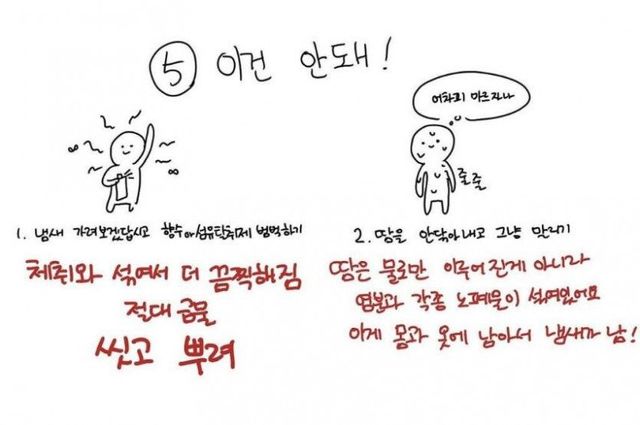 ⑤ 이건 안돼!
어차피 마르자나
줄줄
1. 냄새 가려보겠답시고 향수나 섬유탈취제 범벅하기
체취와 섞여서 더 끔찍해짐
절대 금물
씻고 뿌려
2. 땀을 안닦아내고 그냥 말리기
땀은 물로만 이루어진게 아니라
염분과 각종 노폐물이 섞여있어요
이게 몸과 옷에 남아서 냄새가 남!